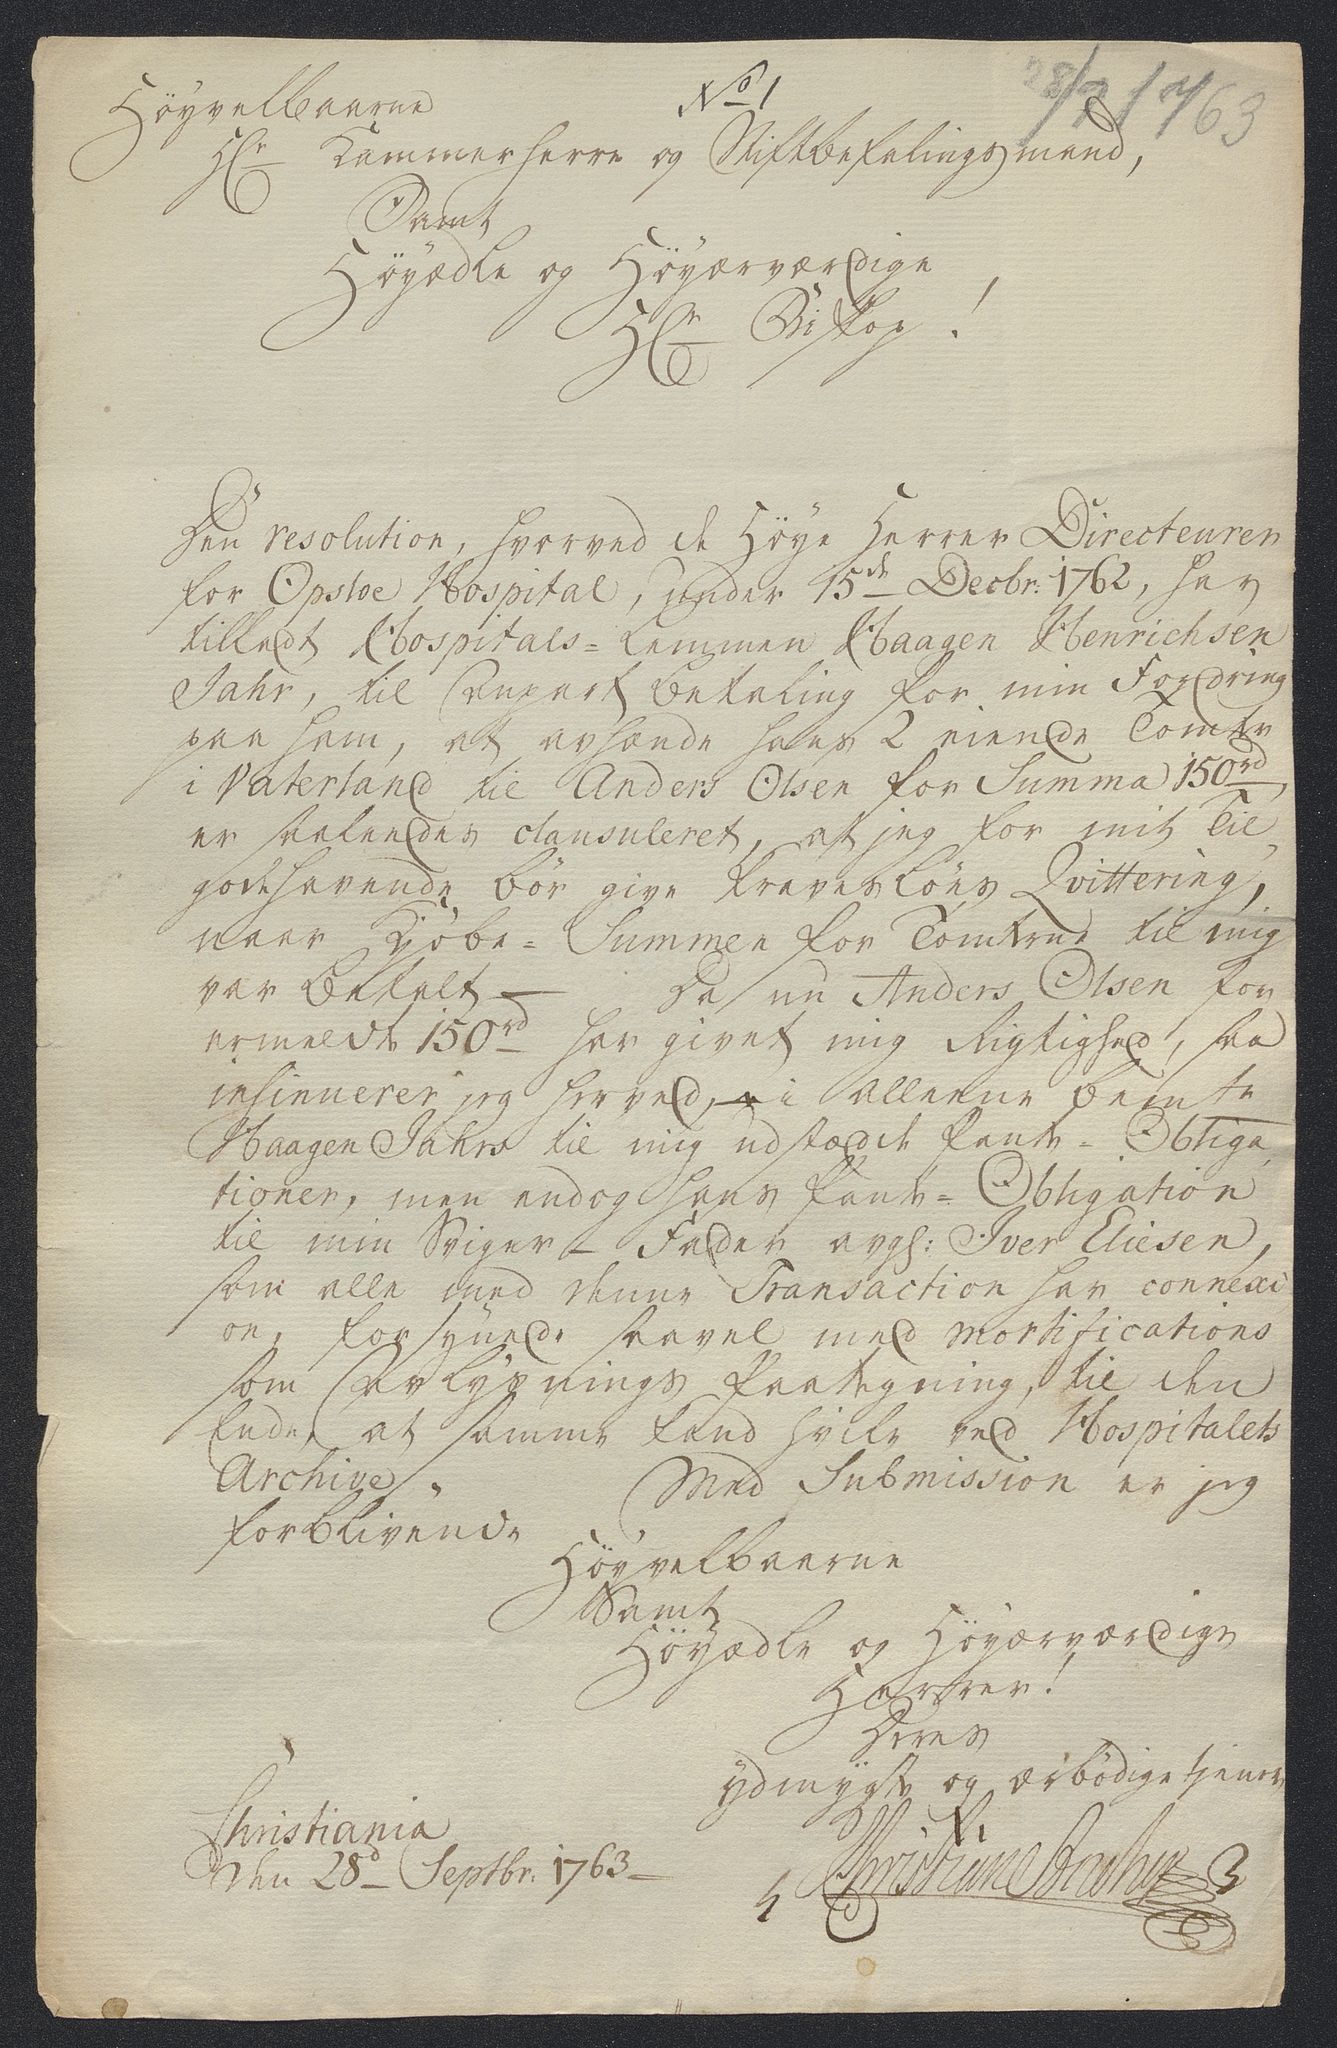 No 1
28/9 1763
Höyvelbaarne
Hr Kammerherre og Stiftbefalingsmand,
Samt
Höyædle og Höyærværdige
Hr Biskop!
Den resolution, hvorved de Höye Herrer Directeurer
for Opsloe Hospital, under 15de Decbr: 1762, har
tilladt Hospitals-Lemmen Haagen Henrichsen
Jahr, til Deels betaling for min Fordring
paa ham, at avhænde hans 2 eiende Tomter
i Vaterland til Anders Olsen for Summa 150rd
er saaledes clausuleret, at jeg for mit Til
godehavende bör give kraveslöes Qvittering,
naar Kjöbe-Summen for Tomterne til mig
var betalt — Da nu Anders Olsen for
ermeldte 150rd har givet mig Rigtighed, saa
insinuerer jeg herved, ei alleene bemte
Haagen Jahrs til mig udstædde Pante-Obliga
tioner, men endog hans Pante-Obligation
til min Sviger-Fader avgl: Iver Eliesen,
som alle med denne Transaction har connexi
on, forsynede saavel med mortifications
som avlysnings Paategning, til den
Ende, at samme kand hvile ved Hospitalets
Archive. Med Submission er jeg
forblivende
Höyvelbaarne
Samt
Höyædle og Höyærværdige
Herrer!
Deres
ydmygste og ærbödige tjener
Christiania
den 28d Septbr. 1763